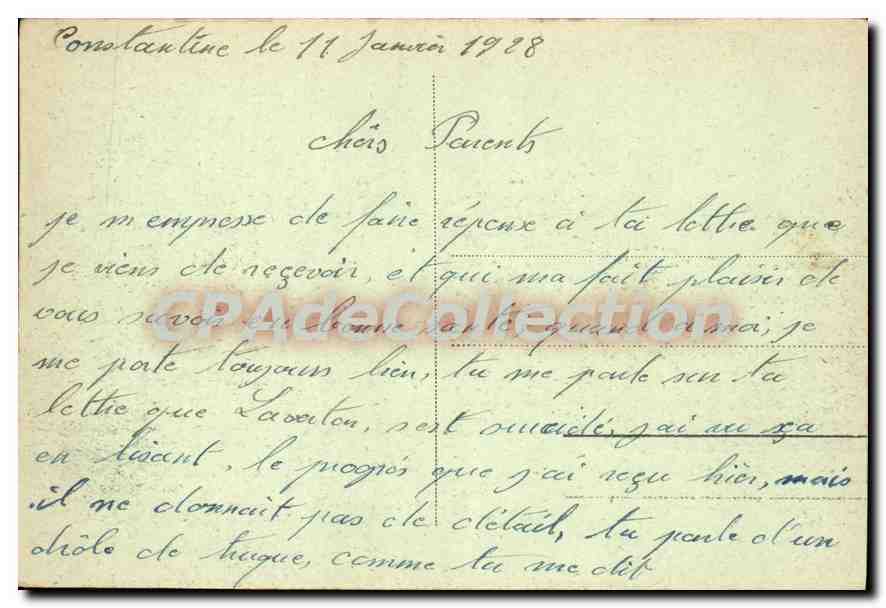 Constantine le 11 Janvier 1928
chèrs Parents
je m'empresse de faire réponse à ta lettre que
je viens de reçevoir, et qui ma fait plaisir de
vous savoir en bonne santé, quand à moi, je
me porte toujours bien, tu me parle sur ta
lettre que Lavaton, s'est suicidé, j'ai vu ça
en lisant, le progrés que j'ai reçu hièr, mais
il ne donnait pas de détail, tu parle d'un
drôle de truque, comme tu me dit
CPAdeCollection